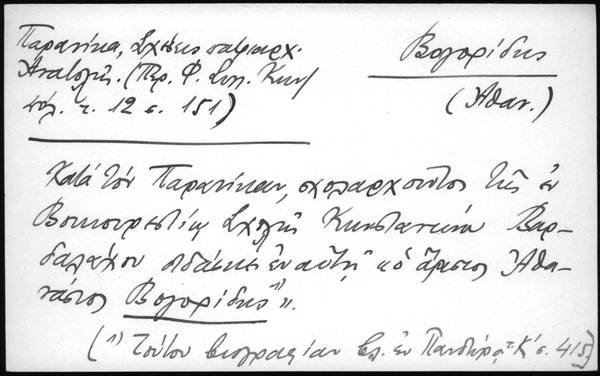 Παρανίκα, Σχέσεις πατριαρχ.
Ἀνατολῆς. (Περ. Φ. Συλ. Κων/
πόλ. τ. 12 σ. 151)
Βογορίδης
(Ἀθαν.)
Κατὰ τὸν Παρανίκαν, σχολαρχοῦντος τῆς ἐν
Βουκουρεστίῳ Σχολῆς Κωνσταντίνου Βαρ-
δαλάχου ἐδίδασκε ἐν αὐτῇ « ὁ ἄριστος Ἀθα-
νάσιος Βογορίδης¹⁾».
(¹) Τούτου βιογραφίαν βλ. ἐν Πανδώρᾳ τ. Κ΄ σ. 415)